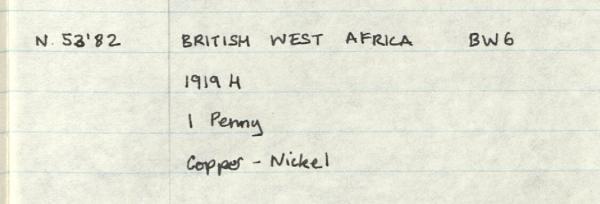 N. 53'82 BRITISH WEST AFRICA BW6
1919 H
1 Penny
Copper - Nickel